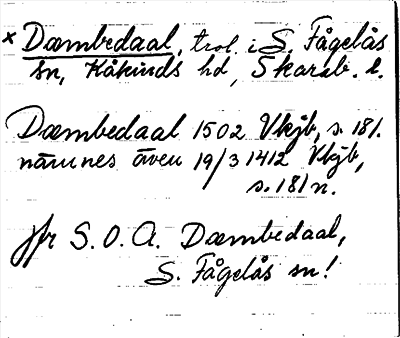 x Dæmbedaal, trol. i S. Fågelås
sn, Kåkinds hd, Skarab. l.
Dæmbedaal 1502 Vkjb, s. 181.
nämnes även 19/3 1412 Vkjb,
s. 181 n.
jfr S.O.A. Dæmbedaal,
S. Fågelås sn!